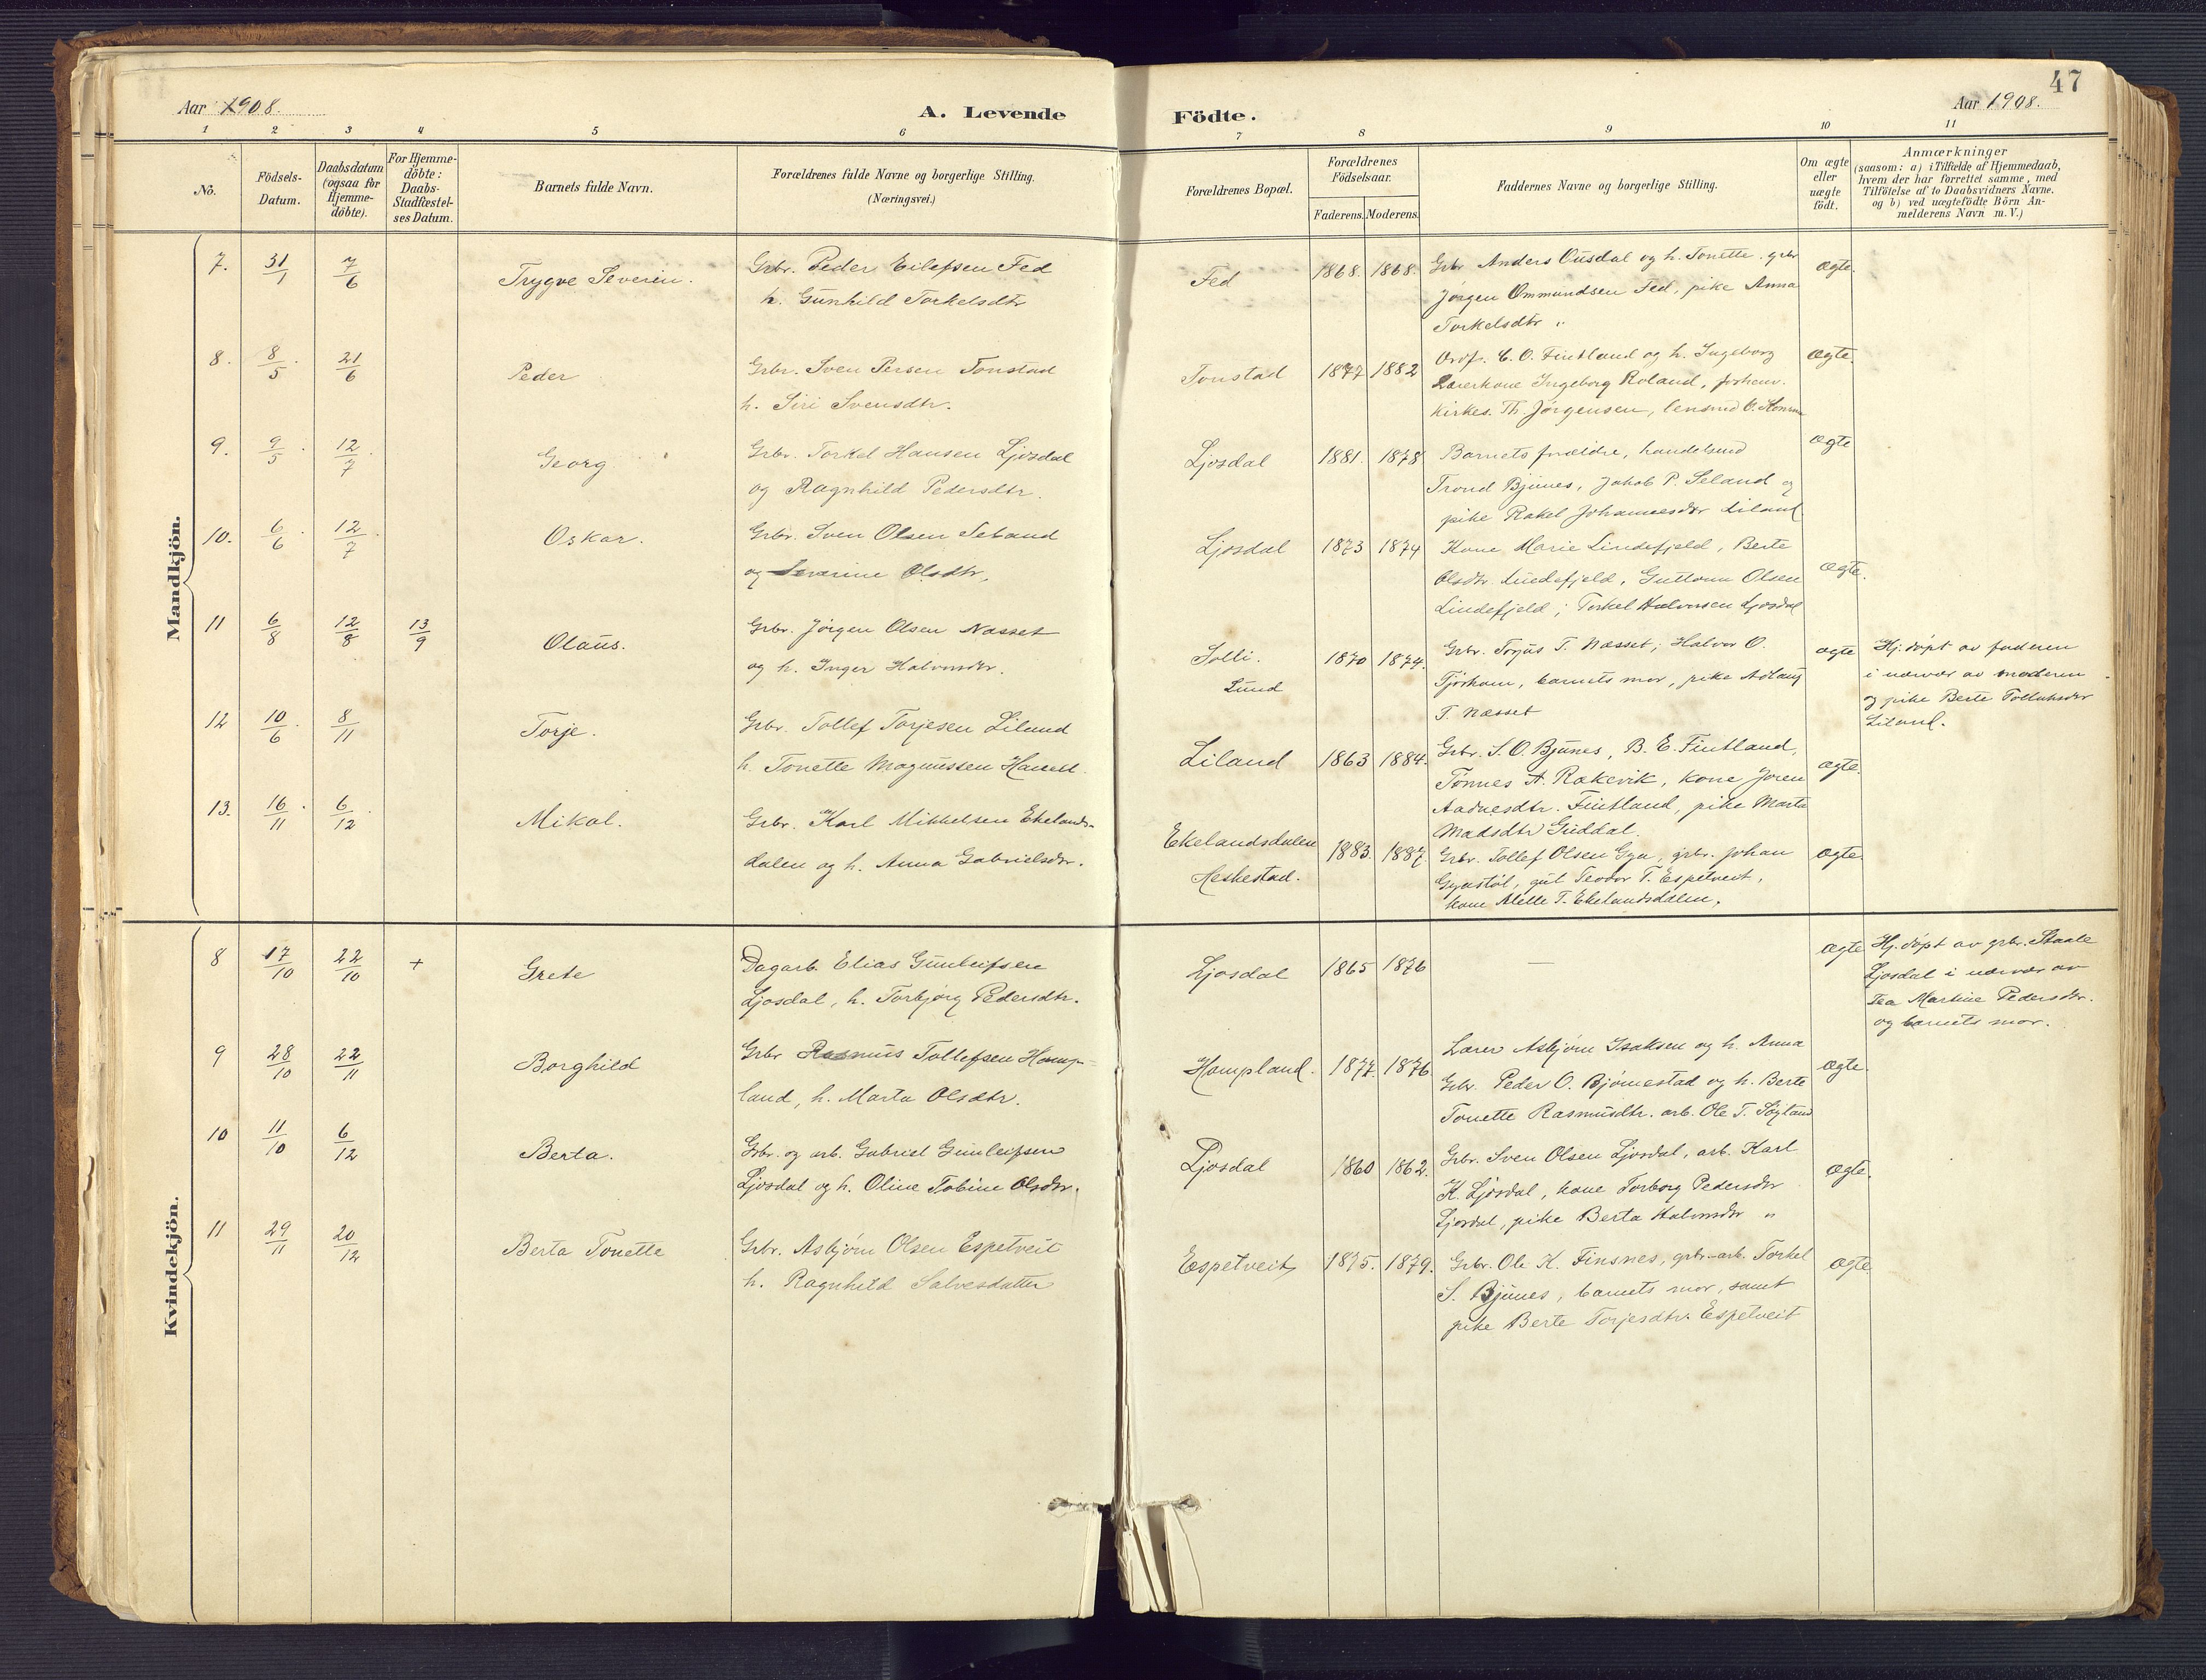 47
Aar 1908.
A. Levende Födte.
Aar 1908.
1 2 3 4 5 6 7 8 9 10 11
No.
Födsels-
Datum.
Daabsdatum
(ogsaa for
Hjemme-
döbte).
For Hjemme-
döbte:
Daabs-
Stadfæstel-
ses Datum.
Barnets fulde Navn.
Forældrenes fulde Navne og borgerlige Stilling.
(Næringsvei.)
Forældrenes Bopæl.
Forældrenes
Födselsaar.
Faderens. Moderens.
Faddernes Navne og borgerlige Stilling.
Om ægte
eller
uægte
födt.
Anmærkninger
(saasom: a) i Tilfælde af Hjemmedaab,
hvem der har forrettet samme, med
Tilföielse af to Daabsvidners Navne.
og b) ved uægtefödte Börn An-
melderens Navn m.V.)
Mandkjön.
7. 31/1 7/6 Trygve Severin.
Grbr. Peder Eilefsen Fed
h. Gunhild Torkelsdtr
Fed 1868. 1868.
Grbr Anders Ousdal og h. Tonette. grbr
Jørgen Ommundsen Fed, pike Anna
Torkelsdtr "
ægte.
8. 8/5 21/6 Peder
Grbr. Sven Persen Tonstad
h. Siri Svensdtr.
Tonstad 1877 1882
Ordf. E. O. Fintland og h. Ingeborg
Lærerkone Ingeborg Roland, forhenv.
kirkes. Th. Jørgensen, lensmd O. Homme
ægte.
9. 9/5 12/7 Georg.
Grbr. Torkel Hansen Ljosdal
og Ragnhild Pedersdtr.
Ljosdal 1881. 1878
Barnets forældre, handelsmd
Trond Bjunes, Jakob P. Seland og
pike Rakel Johannesdtr Liland
ægte
10. 6/6 12/7 Oskar.
Grbr. Sven Olsen
og Severine Olsdtr,
Ljosdal 1873 1874
Kone Marie Lindefjeld, Berte
Olsdtr. Lindefjeld, Guttorm Olsen
Lindefjeld; Torkel Halvorsen Ljosdal
ægte.
11 6/8 12/8 13/9 Olaus.
Grbr. Jörgen Olsen Næsset
og h. Inger Halvorsdtr.
Solli.
Lund
1870 1874.
Grbr. Torjus T. Næsset; Halvor O.
Tjørhom, barnets mor, pike Adlaug
T. Næsset
ægte
Hj. døpt av faderen
i nærvær av moderen
og pike Berte
Liland.
12 10/6 8/11 Torje.
Grbr. Tollef Torjesen Liland
h. Tonette Magnussen
Liland 1863 1884.
Grbr. S. O. Bjunes, B. E. Fintland,
Tønnes A. Rakevik, kone Joren
Aadnesdtr. Fintland, pike Marta
Madsdtr Guddal.
ægte.
13. 16/11 6/12 Mikal.
Grbr. Karl Mikkelsen Ekelands-
dalen og h. Anna Gabrielsdtr.
Ekelandsdalen
Heskestad.
1883. 1887.
Grbr. Tollef Olsen Gya, grbr. Johan
Gyastøl, gut Teodor T. Espetveit,
kone T. Ekelandsdalen.
ægte.
Kvindekjön.
8 17/10 22/10 + Grete
Dagarb. Elias Gunleifsen
Ljosdal, h. Torbjørg Pedersdtr.
Ljosdal 1865 1876
—
ægte
Hj. døpt av grbr. Staale
Ljosdal i nærvær av
Tea Martine Pedersdtr.
og barnets mor.
9 28/10 22/11 Borghild
Grbr Rasmus Tollefsen Homp-
land, h. Marta Olsdtr.
Hompland. 1877. 1876.
Lærer Asbjørn Isaksen og h. Anna
Grbr. Peder O. Bjørnestad og h. Berte
Tonette Rasmusdtr. arb. Ole T.
ægte.
10 11/10 6/12 Berta.
Grbr. og arb. Gabriel Gunleifsen
Ljosdal og h. Oline Tobine Olsdtr.
Ljosdal 1860 1862.
Grbr. Sven Olsen Ljosdal, arb. Karl
K. Ljosdal, kone Torborg Pedersdtr
Ljosdal, pike Berta Halvorsdtr "
ægte.
11 29/11 20/12 Berta Tonette
Grbr. Asbjørn Olsen Espetveit
h. Ragnhild Salvesdatter
Espetveit 1875. 1879.
Grbr. Ole K. Finsnes, grbr.-arb. Torkel
S. Bjunes, barnets mor, samt
pike Berte Torjesdtr. Espetveit
ægte.